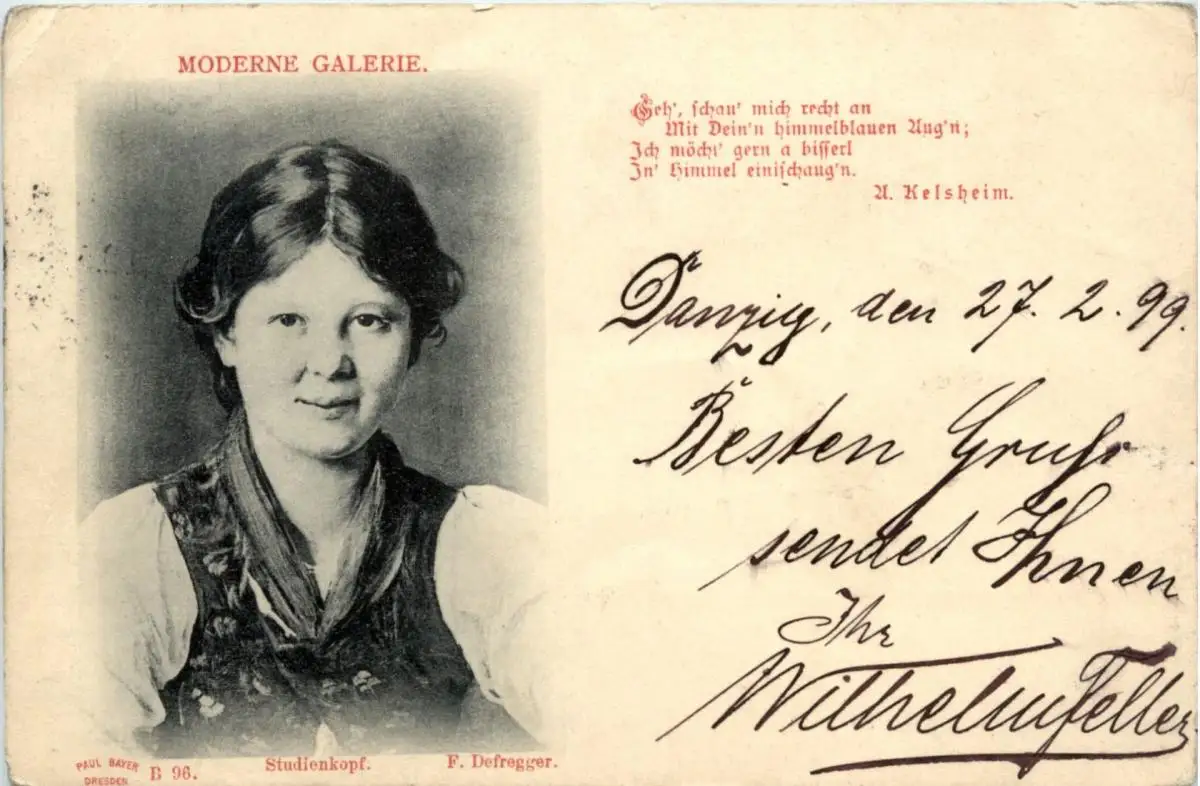 MODERNE GALERIE.
Geh', schau' mich recht an
Mit Dein'n himmelblauen Aug'n;
Ich möcht' gern a bisserl
In' Himmel einischaug'n.
A. Kelsheim.
Danzig, den 27. 2. 99.
Besten Gruß
sendet Ihnen
Ihr
Wilhelm Feller
PAUL BAYER
DRESDEN
B 96.
Studienkopf.
F. Defregger.